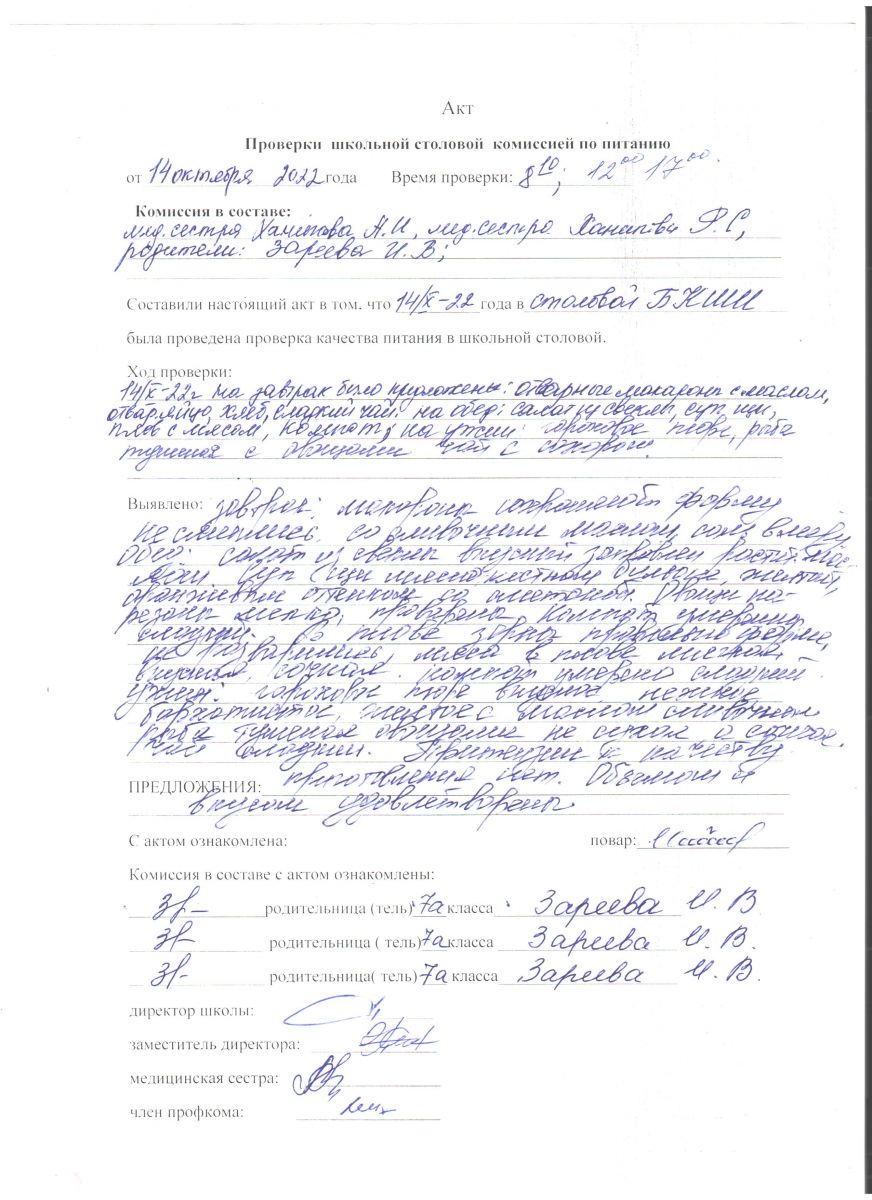 Акт
Проверки школьной столовой комиссией по питанию
от 14 октября 2022 года Время проверки: 8 10; 12 00 17 00.
Комиссия в составе:
мед.сестра Ханипова А.И, мед.сестра Р.С,
родители: Зареева И.В;
Составили настоящий акт в том, что 14/X-22 года в столовой БКШИ
была проведена проверка качества питания в школьной столовой.
Ход проверки:
14/X-22г на завтрак было предложены: отварные макароны с маслом,
отвар.яйцо, хлеб, сладкий чай. на обед: салат из свеклы, суп щи,
плов с мясом, компот, на ужин: гороховое пюре, рыба
тушеная с овощами чай с сахаром.
Выявлено: завтрак: макароны сохранность форму
не слиплись со сливочным маслом, соль в меру
Обед: салат из свеклы вкусный заправлен растит. мас
лом суп щи мясо-костном бульоне, желтый,
оранжевым оттенком со сметаной. Овощи на-
резаны мелко, проварены компот умеренно
сладкий. В плове зерна правильно формы,
не разварились, мясо в плове мягкое
вкусная, сочная. компот умерено сладкий
Ужин: гороховое пюре вкусное нежное
бархатистое, желтое с маслом сливочным
рыба тушеная овощами не сухая а сочная.
чай сладкий. Притензии к качеству
ПРЕДЛОЖЕНИЯ: приготовления нет. Объемом и
вкусом удовлетворены
С актом ознакомлена: повар:
Комиссия в составе с актом ознакомлены:
родительница (тель) 7а класса Зареева И. В
родительница ( тель) 7а класса Зареева И. В.
родительница( тель) 7а класса Зареева И. В.
директор школы:
заместитель директора:
медицинская сестра:
член профкома: